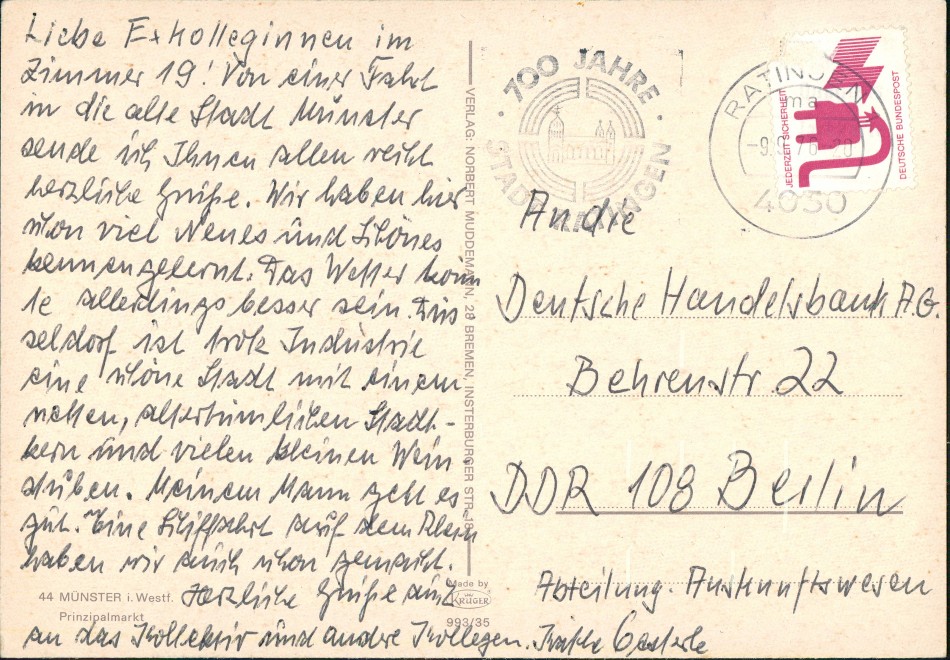 Liebe Exkolleginnen im
Zimmer 19! Von einer Fahrt
in die alte Stadt Münster
sende ich Ihnen allen recht
herzliche Grüße. Wir haben hier
schon viel Neues und Schönes
kennengelernt. Das Wetter könn
te allerdings besser sein. Düs
seldorf ist trotz Industrie
eine schöne Stadt mit einem
netten, altertümlichen Stadt-
kern und vielen kleinen Wein
stuben. Meinem Mann geht es
gut. Eine Schiffahrt auf dem Rhein
haben wir auch schon gemacht.
Herzliche Grüße auch
an das Kollektiv und andere Kollegen.
44 MÜNSTER i. Westf.
Prinzipalmarkt
Made by
KRÜGER
993/35
VERLAG: NORBERT MUDDEMANN, 28 BREMEN, INSTERBURGER STR. 18
700 JAHRE
STADT RATINGEN
RATINGEN
ma
-9.9.76-20
4030
JEDERZEIT SICHERHEIT
DEUTSCHE BUNDESPOST
An die
Deutsche Handelsbank A.G.
Behrenstr. 22
DDR 108 Berlin
Abteilung. Auskunftswesen